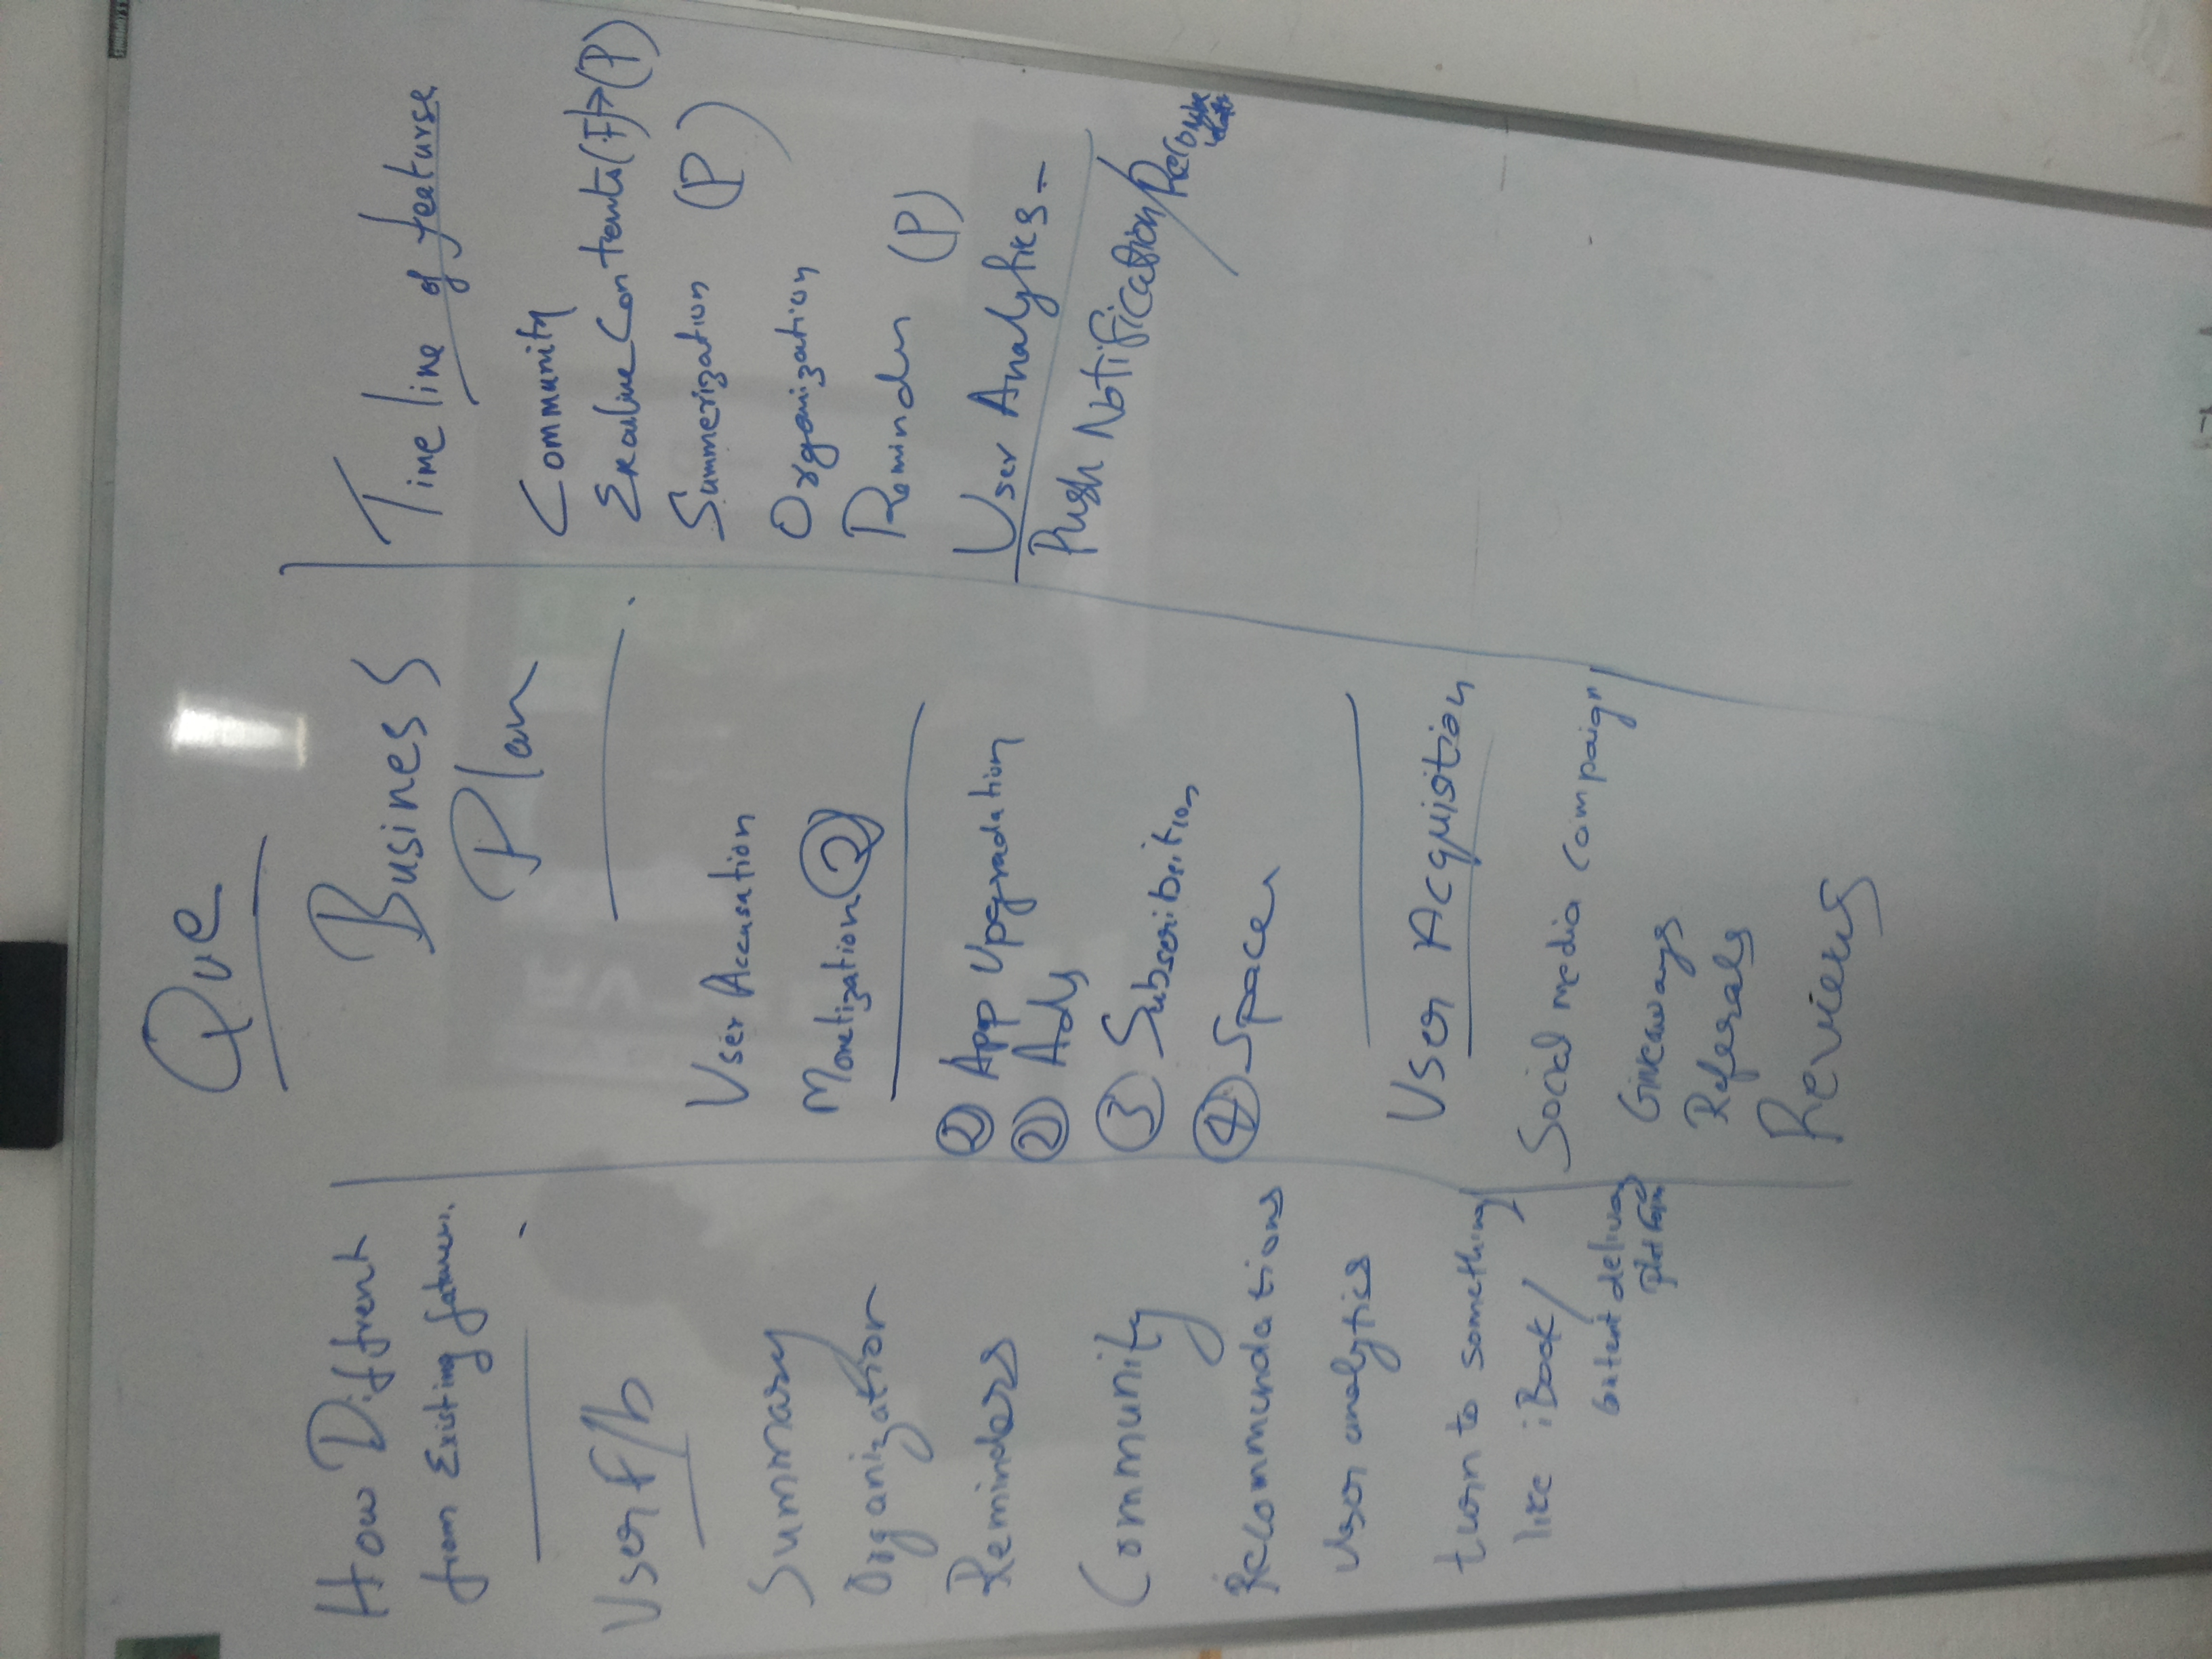 Que
How Diffrent
from Existing
User F/b
Summary
Organization
Reminders
Community
Recommendations
User analytics
turn to something
like iBook/
Content delivery
platform
Business
Plan
User Accusation
Monetization 2
App Upgradation
2 Ads
3 Subscribsition
4 Space
User Acquistion
Social media campaign
Giveaways
Referals
Reviews
Time line of featurse
Community
Contents (F)→(P)
Summerization (P)
Organization
Reminder (P)
User Analytics -
Push Notification/